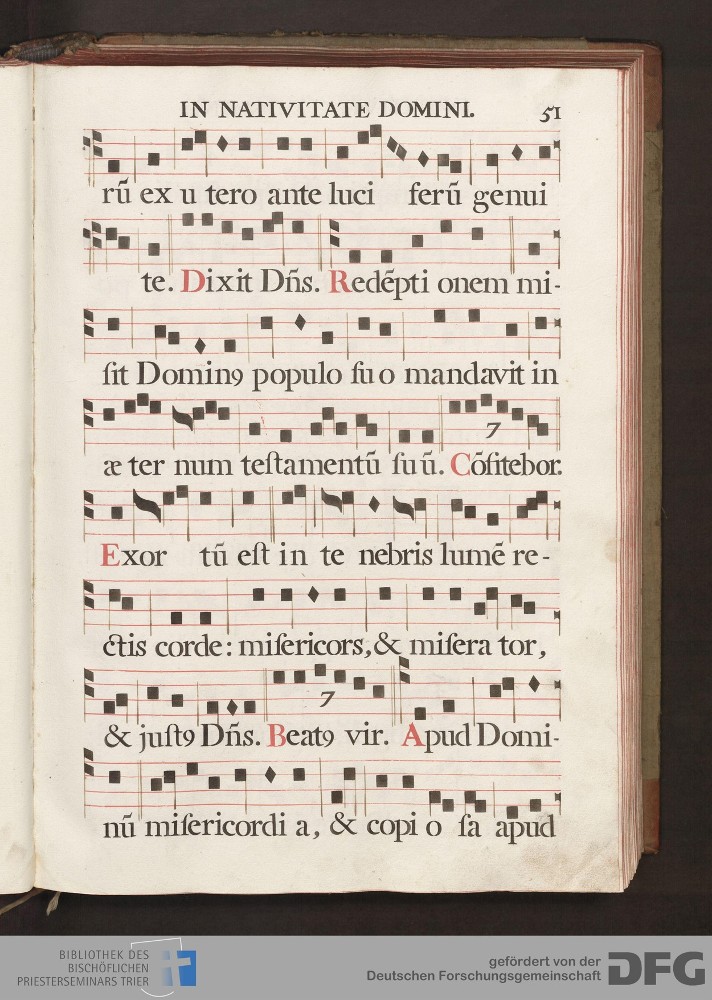 IN NATIVITATE DOMINI. 51
rũ ex u tero ante luci ferũ genui
te. Dixit Dñs. Redẽpti onem mi-
ſit Dominꝰ populo ſuo mandavit in
æ ter num teſtamentũ ſuũ. Cõfitebor.
7
Exor tũ eſt in te nebris lumẽ re-
ctis corde: miſericors, & miſera tor,
& juſtꝰ Dñs. Beatꝰ vir. Apud Domi-
7
nũ miſericordi a, & copi o ſa apud
BIBLIOTHEK DES
BISCHÖFLICHEN
PRIESTERSEMINARS TRIER
gefördert von der
Deutschen Forschungsgemeinschaft
DFG